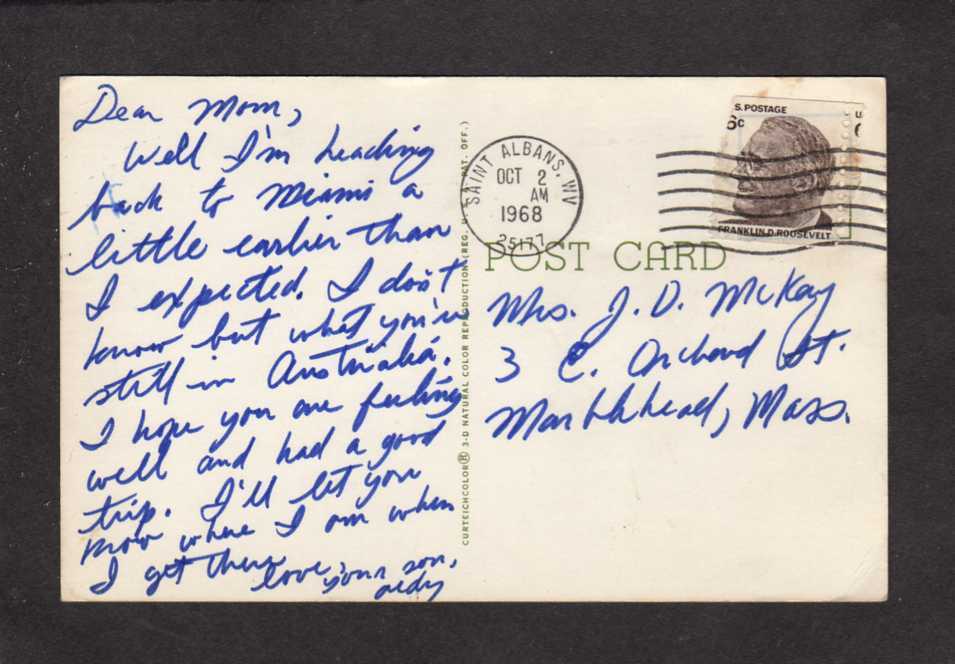 Dear Mom,
Well I'm heading
back to Miami a
little earlier than
I expected. I don't
know but what you're
still in Australia.
I hope you are feeling
well and had a good
trip. I'll let you
know where I am when
I get there
love, your son,
S. POSTAGE
6c
FRANKLIN D. ROOSEVELT
SAINT ALBANS, WV
OCT 2
AM
1968
25177
POST CARD
Mrs. J. D. McKay
3 E. Orchard St.
Marblehead, Mass.
CURTEICHCOLOR® 3-D NATURAL COLOR REPRODUCTION (REG. U. S. A. PAT. OFF.)